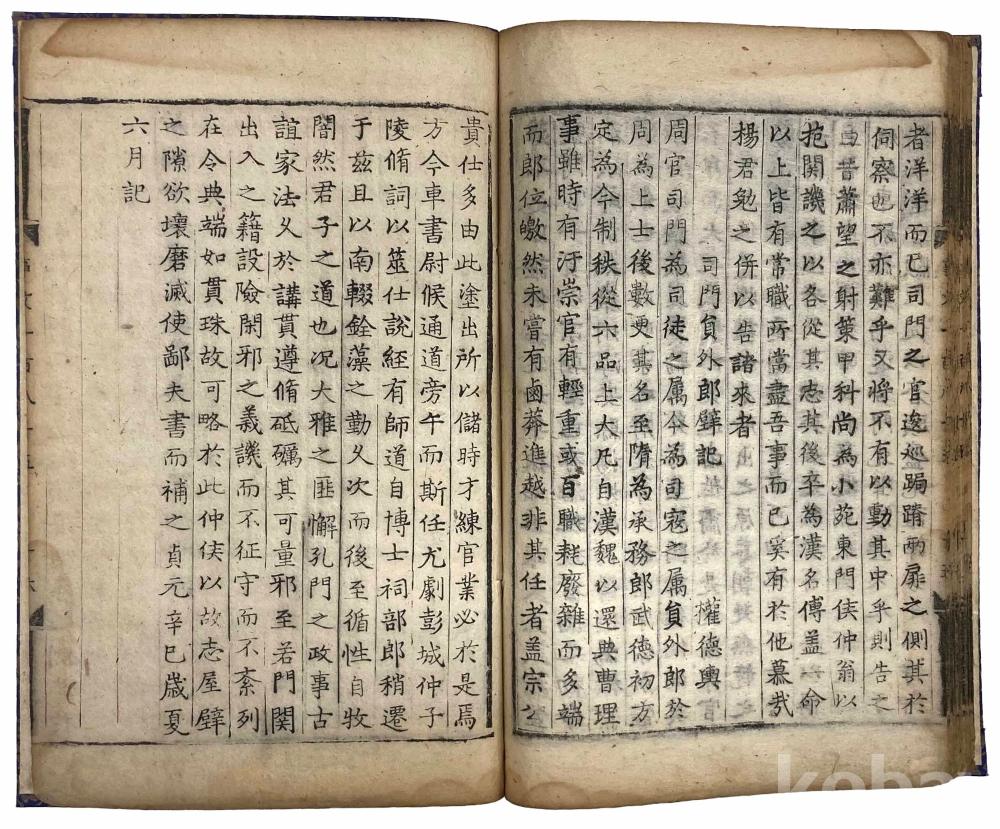 者洋洋而已司門之官逡巡跼蹐兩扉之側其於
伺察也不亦難乎又將不有以動其中乎則告之
曰昔蕭望之射策甲科尚為小苑東門侯仲翁以
抱關譏之以各從其志其後卒為漢名傅盖一命
以上皆有常職所當盡吾事而已奚有於他慕哉
楊君勉之併以告諸來者
司門負外郎壁記 權德輿
周官司門為司徒之属今為司寇之属負外郎於
周為上士後數更其名至隋為承務郎武德初方
定為今制秩從六品上大凡自漢魏以還典曹理
事雖時有汙崇官有輕重或百職耗廢雜而多端
而郎位皦然未嘗有鹵莽進越非其任者盖宗公
貴仕多由此塗出所以儲時才練官業必於是焉
方今車書尉候通道旁午而斯任尤劇彭城仲子
陵脩詞以筮仕說經有師道自博士祠部郎稍遷
于兹且以南轍銓藻之勤久次而後至循性自牧
闇然君子之道也况大雅之匪懈孔門之政事古
誼家法久於講貫遵脩砥礪其可量邪至若門関
出入之籍設險閑邪之義譏而不征守而不紊列
在令典端如貫珠故可略於此仲侯以故志屋壁
之隙欲壞磨滅使鄙夫書而補之貞元辛巳歲夏
六月記